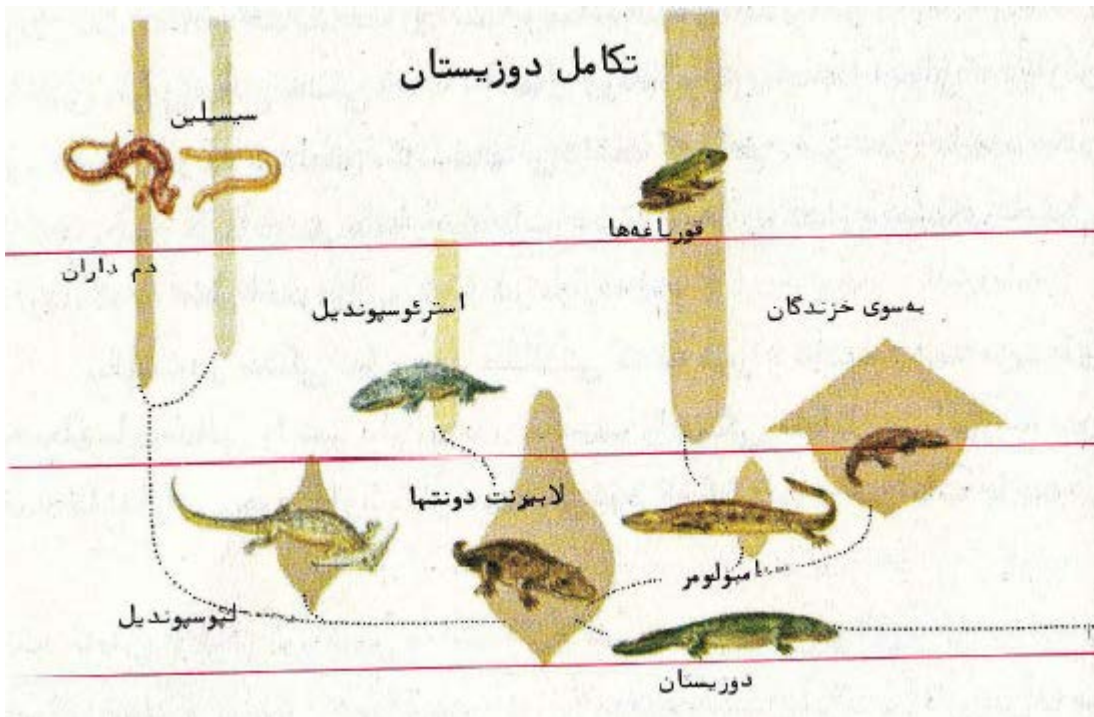 تکامل دوزیستان
سیسیلین
قورباغه‌ها
دم داران
استرئوسپوندیل
به‌سوی خزندگان
لابیرنت دونتها
امبولومر
لپوسپوندیل
دوزیستان